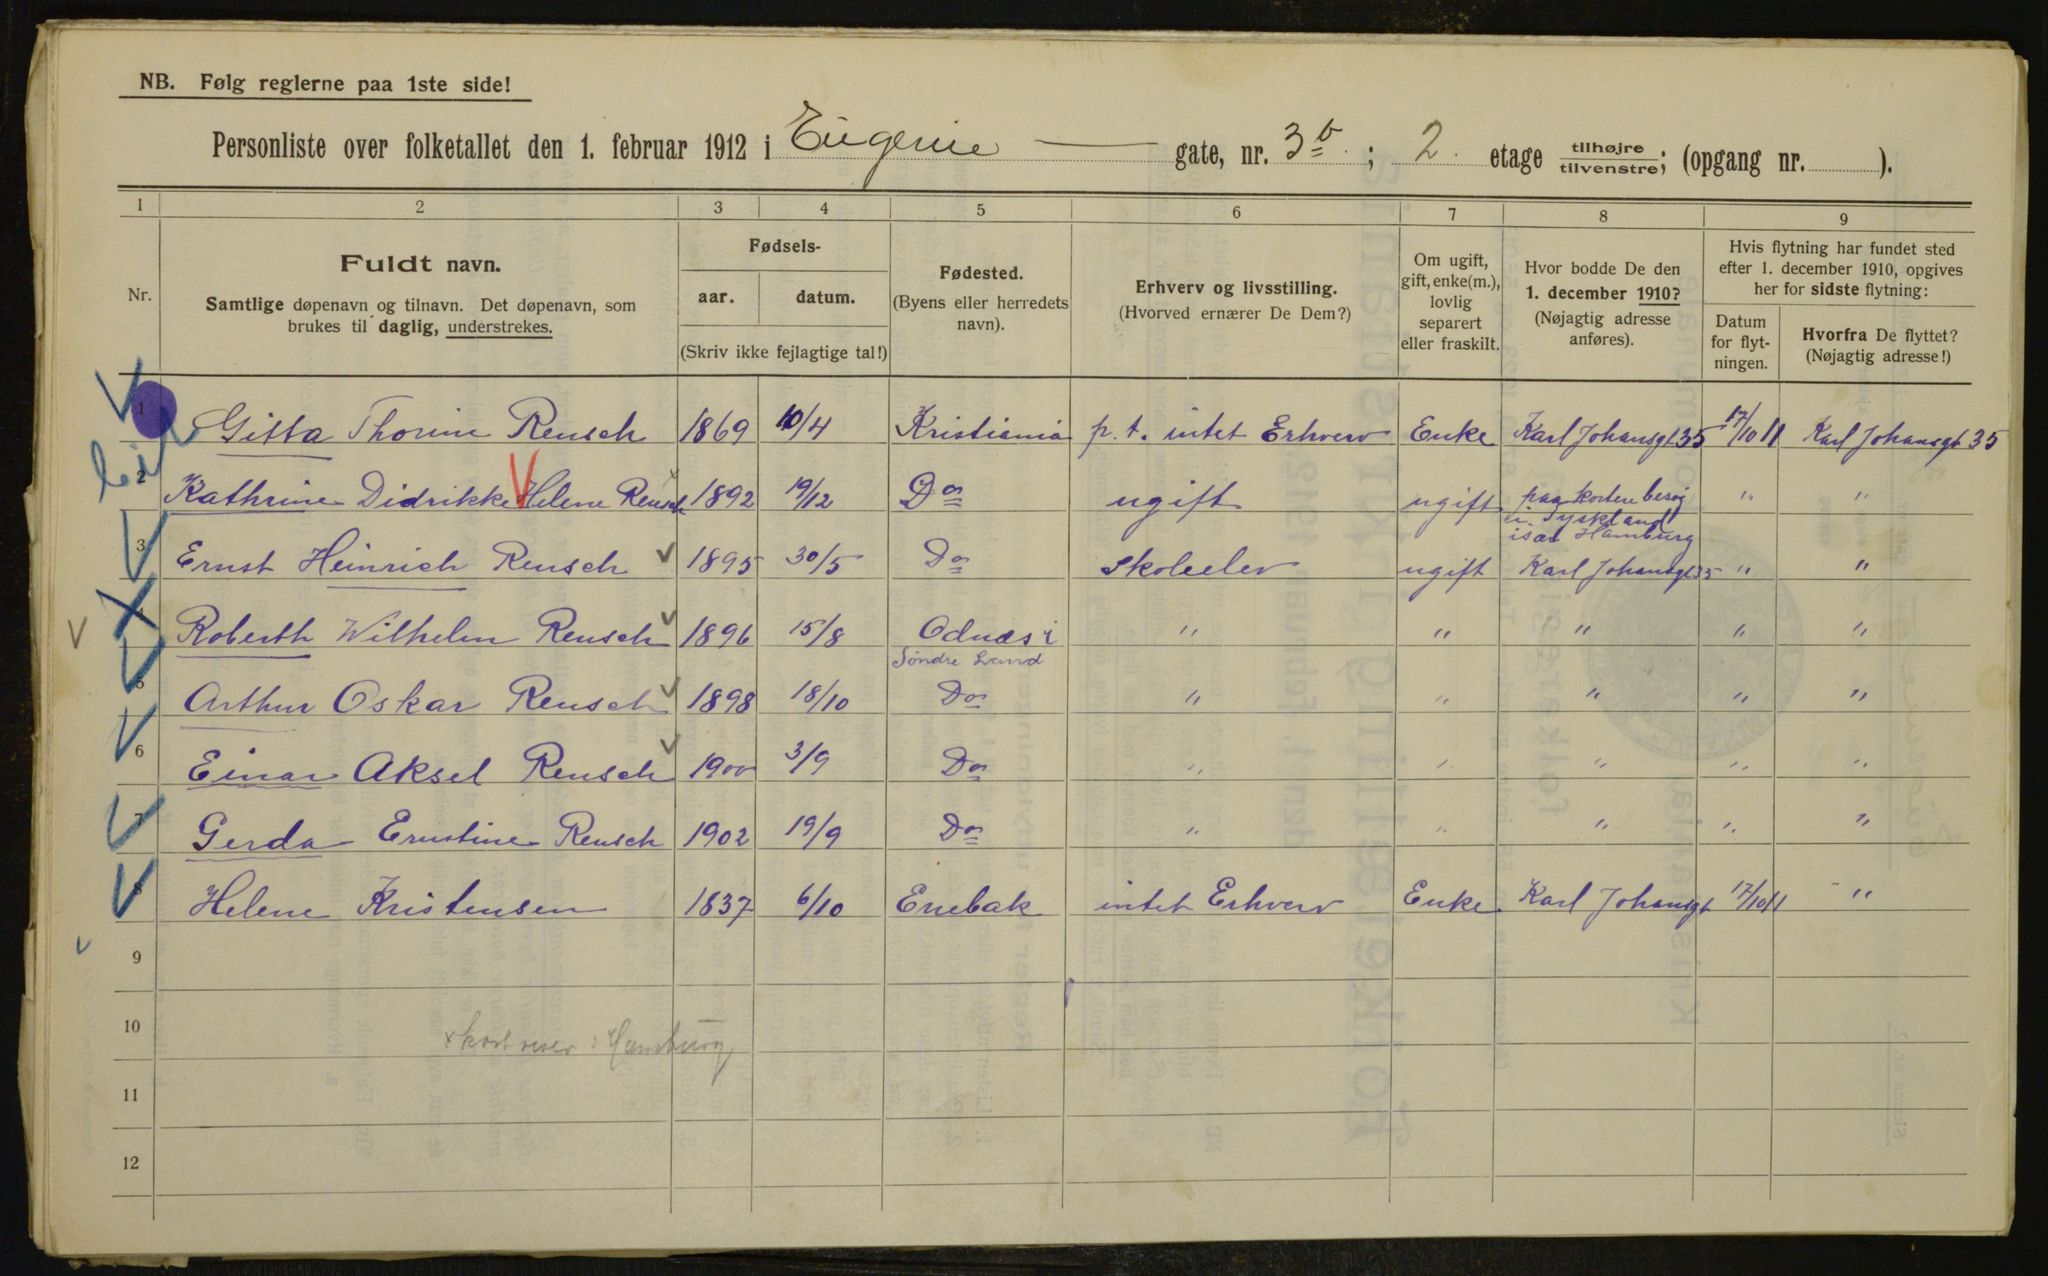 NB. Følg reglerne paa 1ste side!
Personliste over folketallet den 1. februar 1912 i Eugenie gate, nr. 3b.; 2. etage tilhøjre tilvenstre; (opgang nr. ).
1 2 3 4 5 6 7 8 9
Nr.
Fuldt navn.
Samtlige døpenavn og tilnavn. Det døpenavn, som
brukes til daglig, understrekes.
Fødsels-
aar. datum.
(Skriv ikke fejlagtige tal!)
Fødested.
(Byens eller herredets
navn).
Erhverv og livsstilling.
(Hvorved ernærer De Dem?)
Om ugift,
gift, enke(m.),
lovlig
separert
eller fraskilt.
Hvor bodde De den
1. december 1910?
(Nøjagtig adresse
anføres).
Hvis flytning har fundet sted
efter 1. december 1910, opgives
her for sidste flytning:
Datum
for flyt-
ningen.
Hvorfra De flyttet?
(Nøjagtig adresse!)
1 Gitta Thorine Rensch 1869 10/4 Kristiania p. t. intet Erhverv Enke Karl Johansgt 35 17/10 11 Karl Johansgt 35
2 Kathrine Didrikke Helene Rensch 1892 19/12 Do ugift ugift paa kortere besøg i Tyskland Hamburg " "
3 Ernst Heinrich Rensch 1895 30/5 Do Skoleelev ugift Karl Johansgt 35 " "
4 Roberth Wilhelm Rensch 1896 15/8 Odnæs i Søndre Land " " " " "
5 Arthur Oskar Rensch 1898 18/10 Do " " " " "
6 Einar Aksel Rensch 1900 3/9 Do " " " " "
7 Gerda Ernstine Rensch 1902 19/9 Do " " " " "
8 Helene Kristensen 1837 6/10 Enebak intet Erhverv Enke Karl Johansgt 17/10 11 "
9
10
x : Hamburg
11
12